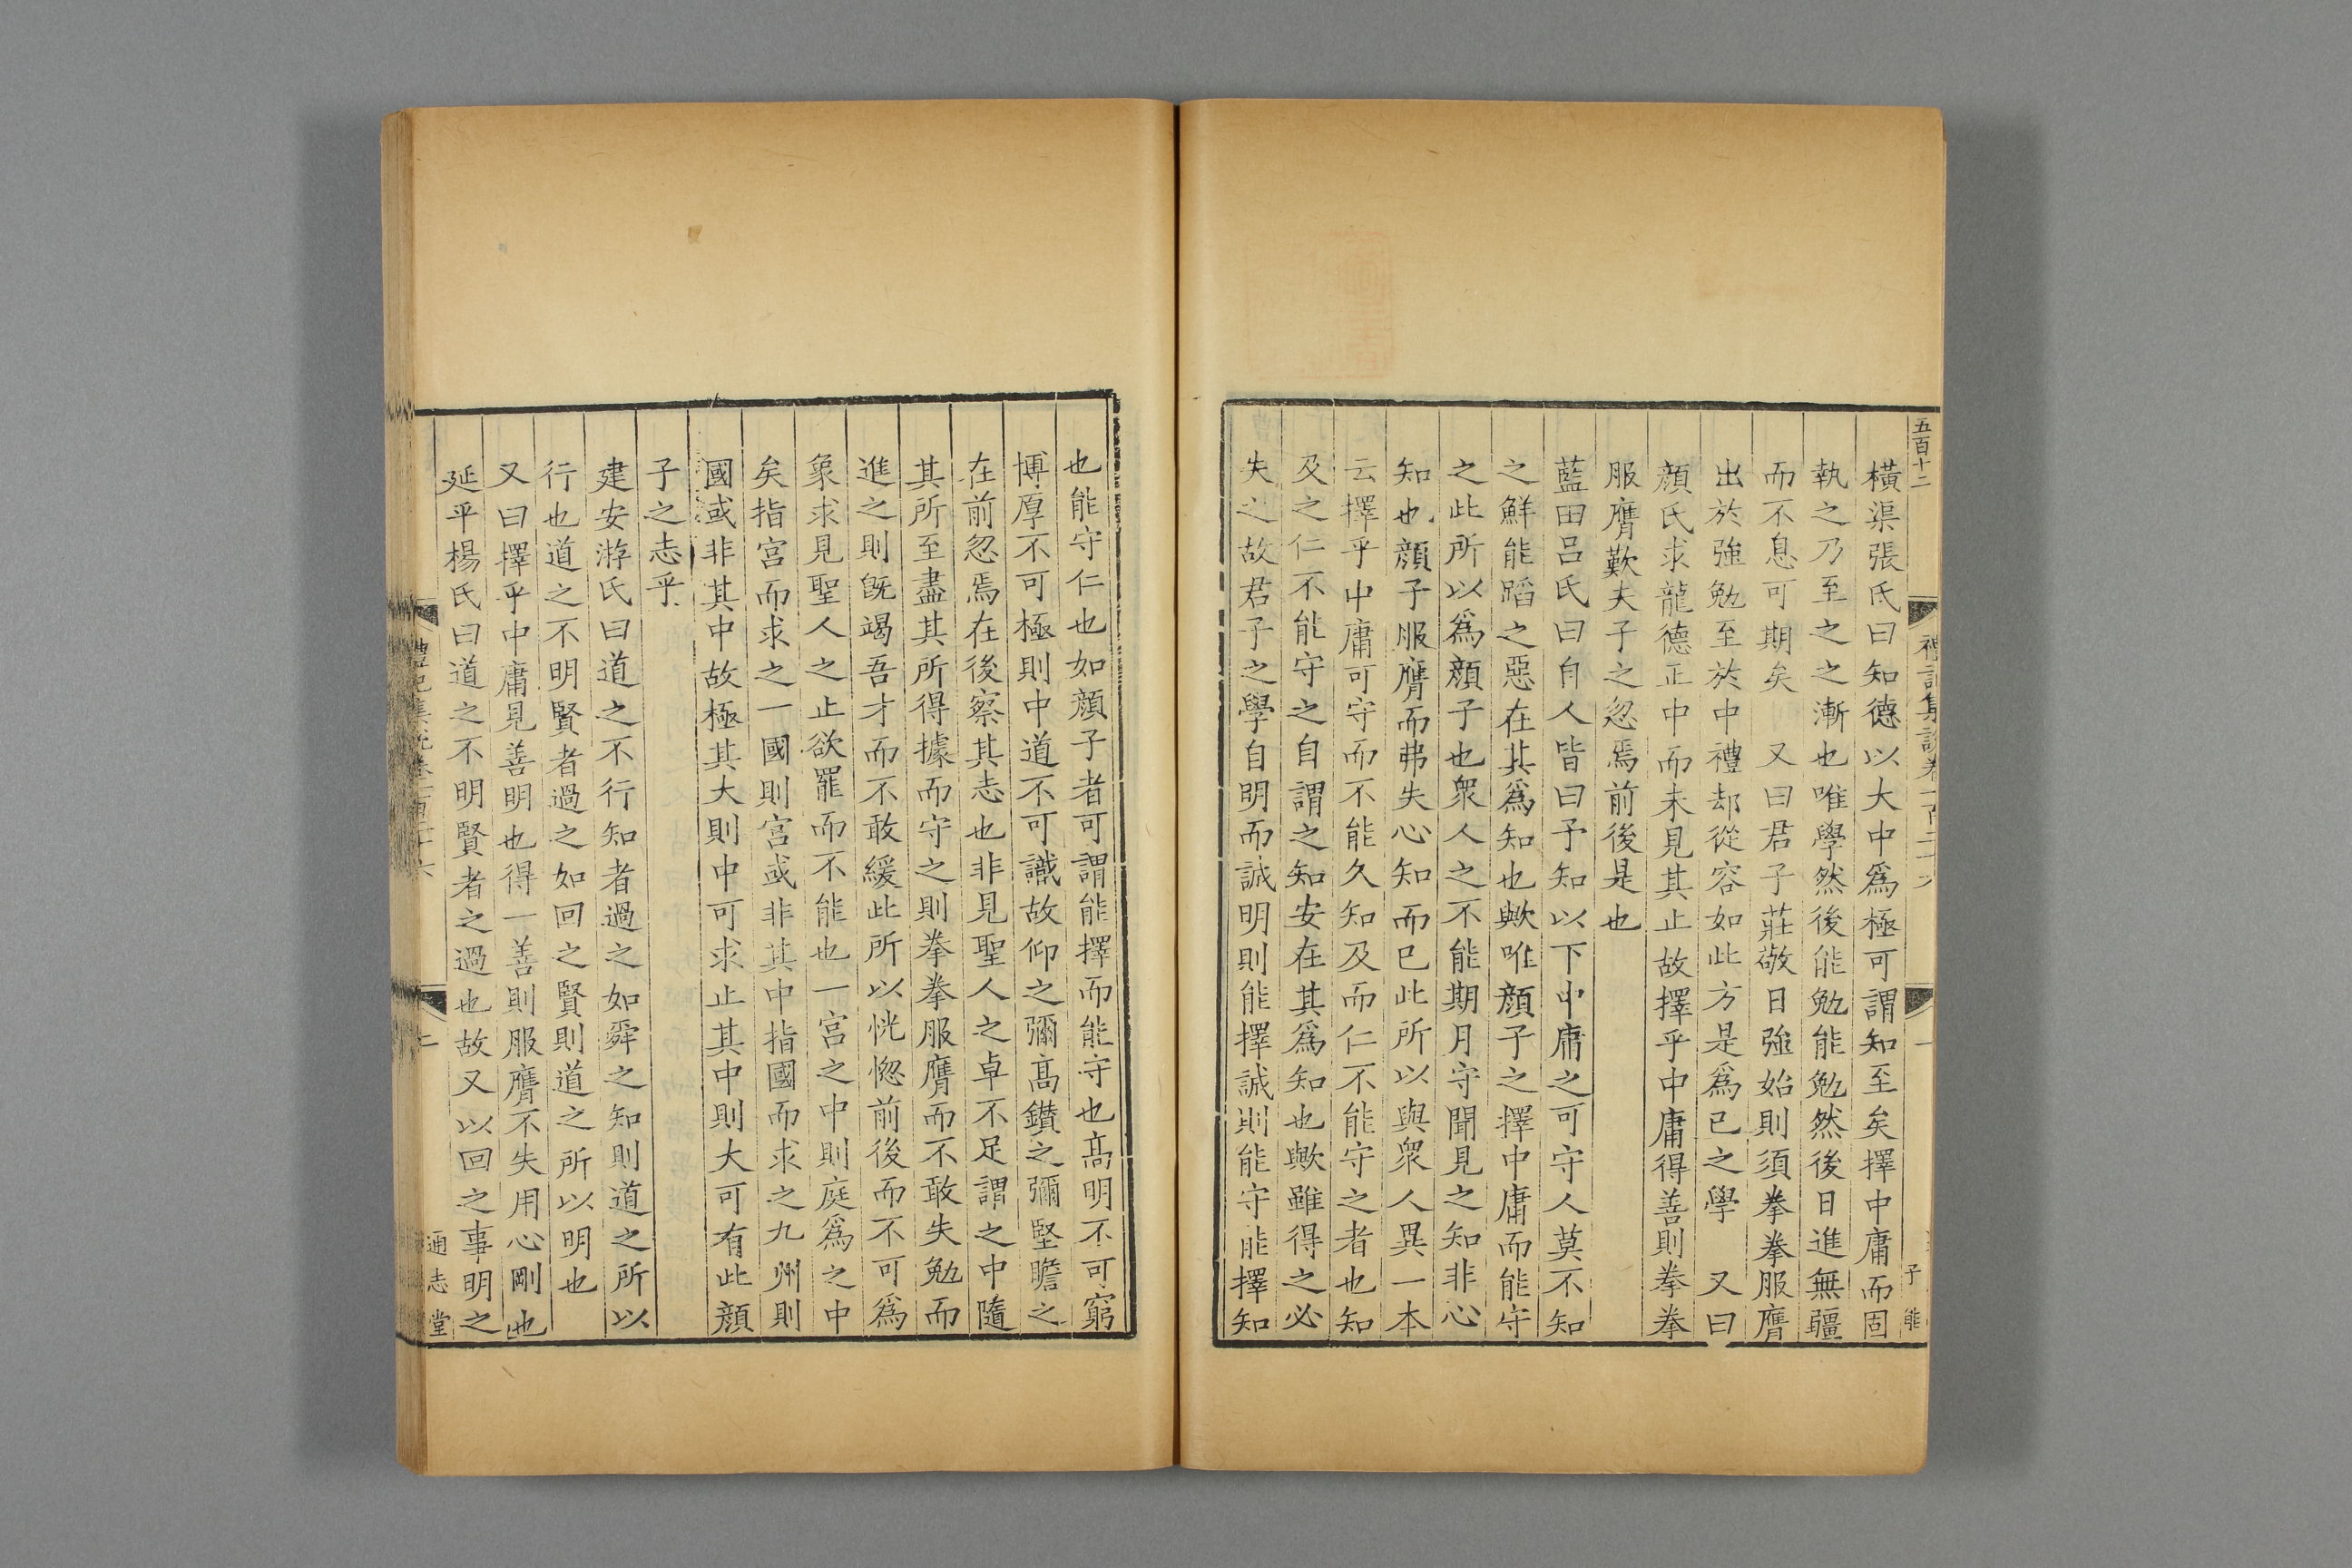 五百十二
禮記集說卷一百二十六
一
子 能
橫渠張氏曰知德以大中爲極可謂知至矣擇中庸而固
執之乃至之之漸也唯學然後能勉能勉然後日進無疆
而不息可期矣 又曰君子莊敬日強始則須拳拳服膺
出於強勉至於中禮却從容如此方是爲已之學 又曰
顏氏求龍德正中而未見其止故擇乎中庸得善則拳拳
服膺歎夫子之忽焉前後是也
藍田呂氏曰自人皆曰予知以下中庸之可守人莫不知
之鮮能蹈之惡在其爲知也歟唯顏子之擇中庸而能守
之此所以爲顏子也衆人之不能期月守聞見之知非心
知也顏子服膺而弗失心知而已此所以與衆人異一本
云擇乎中庸可守而不能久知及而仁不能守之者也知
及之仁不能守之自謂之知安在其爲知也歟雖得之必
失之故君子之學自明而誠明則能擇誠則能守能擇知
也能守仁也如顏子者可謂能擇而能守也高明不可窮
博厚不可極則中道不可識故仰之彌高鑽之彌堅瞻之
在前忽焉在後察其志也非見聖人之卓不足謂之中隨
其所至盡其所得據而守之則拳拳服膺而不敢失勉而
進之則旣竭吾才而不敢緩此所以恍惚前後而不可爲
象求見聖人之止欲罷而不能也一宮之中則庭爲之中
矣指宮而求之一國則宮或非其中指國而求之九州則
國或非其中故極其大則中可求止其中則大可有此顏
子之志乎
建安游氏曰道之不行知者過之如舜之知則道之所以
行也道之不明賢者過之如回之賢則道之所以明也
又曰擇乎中庸見善明也得一善則服膺不失用心剛也
延平楊氏曰道之不明賢者之過也故又以回之事明之
禮記集說卷一百二十六
二
通志堂